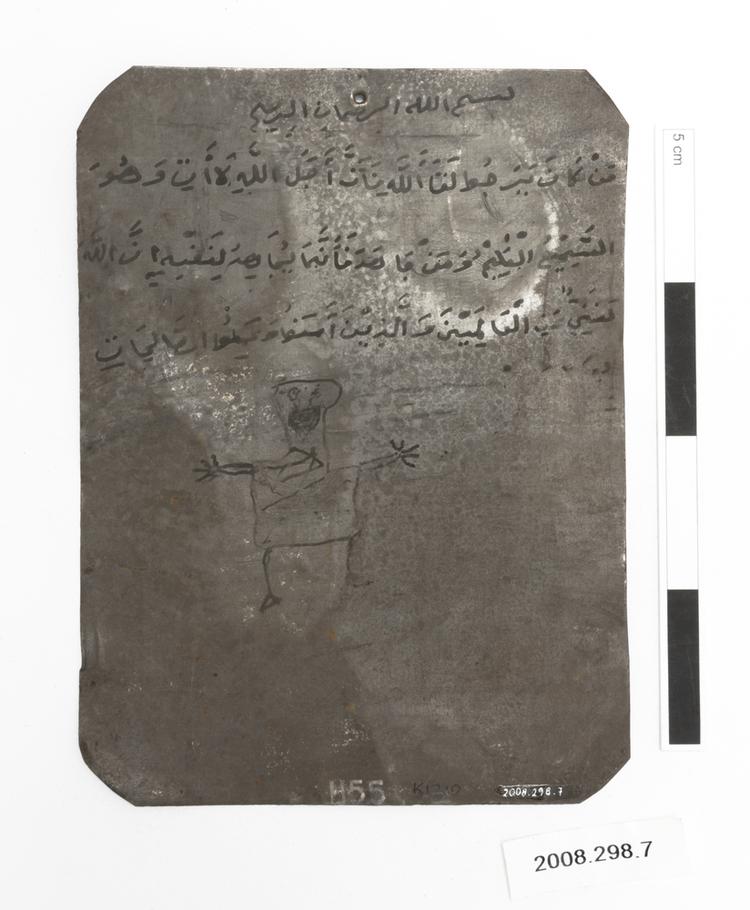 بسم الله الرحمان الرحيم
مَنْ كَانَ يَرْجُوا لِقَاءَ اللَّهِ فَإِنَّ أَجَلَ اللَّهِ لَأَتٍ وَهُوَ
السَّمِيعُ الْعَلِيمُ وَمَنْ جَاهَدَ فَإِنَّمَا يُجَاهِدُ لِنَفْسِهِ إِنَّ اللَّهَ
لَغَنِيٌّ عَنِ الْعَالَمِينَ وَالَّذِينَ أَمَنُوا وَعَمِلُوا الصَّالِحَاتِ
H55
2008.298.7
5 cm
2008.298.7